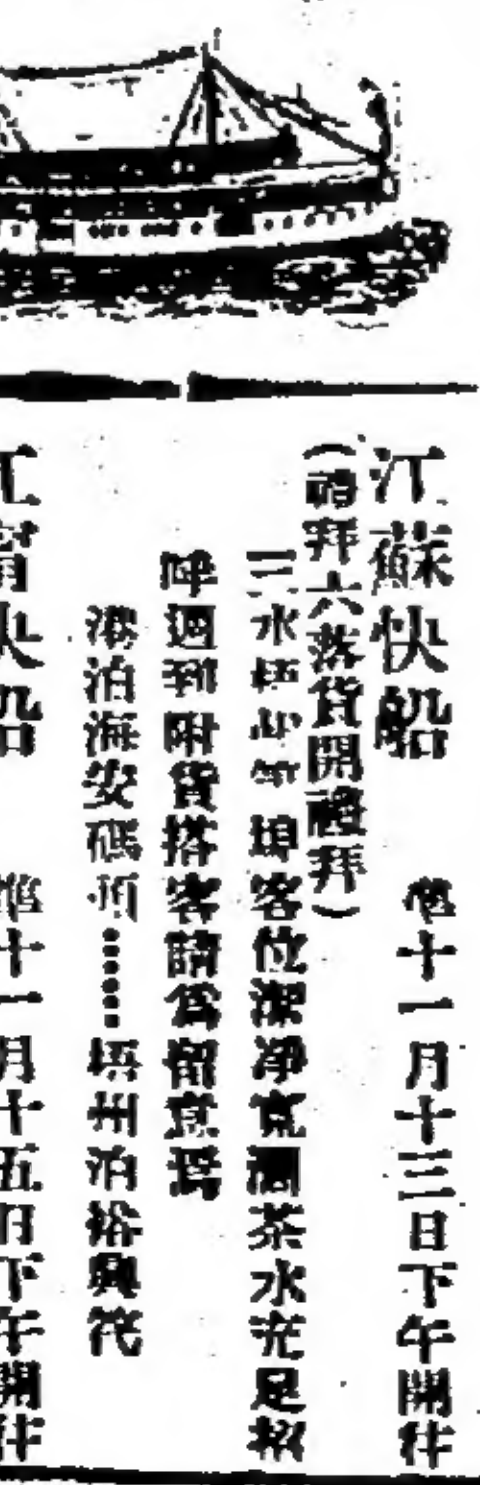 江蘇快船 準十一月十三日下午開往
（禮拜六落貨開禮拜）
三水梧州等埠客位潔淨寬濶茶水充足招
呼週到附貨搭客請為留意焉
港泊海安碼頭……梧州泊裕興筏
江寗快船 準十一月十五日下午開往